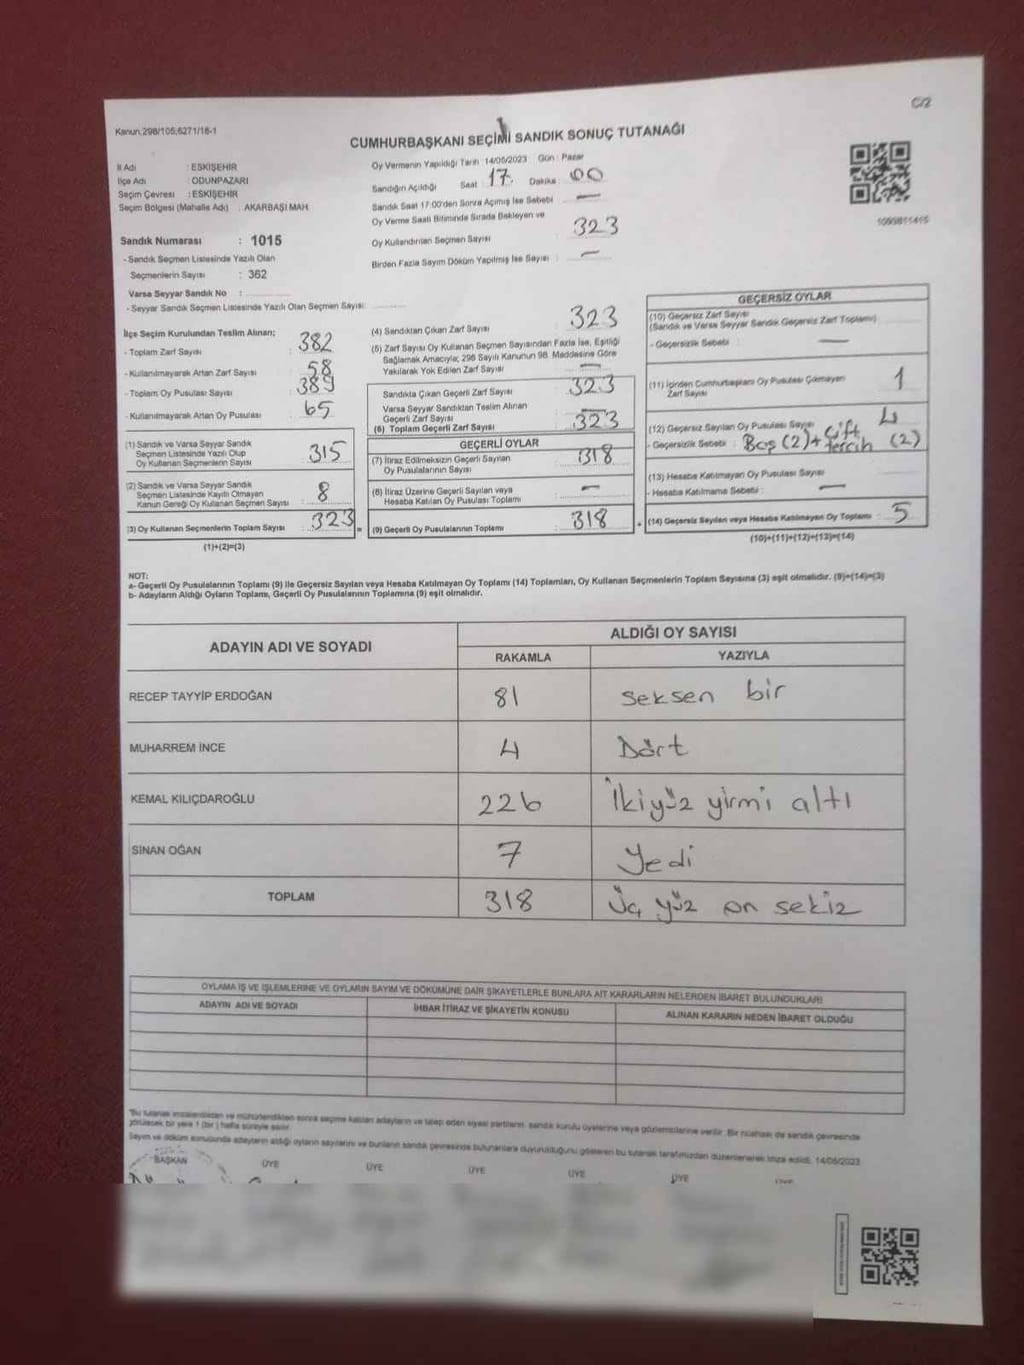 C/2
Kanun,298/105;6271/16-1
CUMHURBAŞKANI SEÇİMİ SANDIK SONUÇ TUTANAĞI
İl Adı : ESKİŞEHİR
İlçe Adı : ODUNPAZARI
Seçim Çevresi : ESKİŞEHİR
Seçim Bölgesi (Mahalle Adı) : AKARBAŞI MAH.
Oy Vermenin Yapıldığı Tarih : 14/05/2023 Gün : Pazar
Sandığın Açıldığı Saat : 17. Dakika : 00
Sandık Saat 17:00'den Sonra Açılmış İse Sebebi : —
Oy Verme Saati Bitiminde Sırada Bekleyen ve
Oy Kullandırılan Seçmen Sayısı : 323
Birden Fazla Sayım Döküm Yapılmış İse Sayısı : —
Sandık Numarası : 1015
- Sandık Seçmen Listesinde Yazılı Olan
Seçmenlerin Sayısı : 362
Varsa Seyyar Sandık No :
- Seyyar Sandık Seçmen Listesinde Yazılı Olan Seçmen Sayısı:
İlçe Seçim Kurulundan Teslim Alınan;
- Toplam Zarf Sayısı : 382
- Kullanılmayarak Artan Zarf Sayısı : 58
- Toplam Oy Pusulası Sayısı : 389
- Kullanılmayarak Artan Oy Pusulası : 65
(1) Sandık ve Varsa Seyyar Sandık
Seçmen Listesinde Yazılı Olup
Oy Kullanan Seçmenlerin Sayısı : 315
(2) Sandık ve Varsa Seyyar Sandık
Seçmen Listesinde Kayıtlı Olmayan
Kanun Gereği Oy Kullanan Seçmen Sayısı : 8
(3) Oy Kullanan Seçmenlerin Toplam Sayısı : 323
(1)+(2)=(3)
(4) Sandıktan Çıkan Zarf Sayısı : 323
(5) Zarf Sayısı Oy Kullanan Seçmen Sayısından Fazla İse, Eşitliği
Sağlamak Amacıyla; 298 Sayılı Kanunun 98. Maddesine Göre
Yakılarak Yok Edilen Zarf Sayısı : —
Sandıkta Çıkan Geçerli Zarf Sayısı : 323
Varsa Seyyar Sandıktan Teslim Alınan
Geçerli Zarf Sayısı : —
(6) Toplam Geçerli Zarf Sayısı : 323
GEÇERLİ OYLAR
(7) İtiraz Edilmeksizin Geçerli Sayılan
Oy Pusulalarının Sayısı : 318
(8) İtiraz Üzerine Geçerli Sayılan veya
Hesaba Katılan Oy Pusulası Toplamı : —
(9) Geçerli Oy Pusulalarının Toplamı : 318
GEÇERSİZ OYLAR
(10) Geçersiz Zarf Sayısı
(Sandık ve Varsa Seyyar Sandık Geçersiz Zarf Toplamı)
- Geçersizlik Sebebi : —
(11) İçinden Cumhurbaşkanı Oy Pusulası Çıkmayan
Zarf Sayısı : 1
(12) Geçersiz Sayılan Oy Pusulası Sayısı : 4
- Geçersizlik Sebebi : Boş (2) + çift tercih (2)
(13) Hesaba Katılmayan Oy Pusulası Sayısı :
- Hesaba Katılmama Sebebi : —
(14) Geçersiz Sayılan veya Hesaba Katılmayan Oy Toplamı : 5
(10)+(11)+(12)+(13)=(14)
NOT:
a- Geçerli Oy Pusulalarının Toplamı (9) ile Geçersiz Sayılan veya Hesaba Katılmayan Oy Toplamı (14) Toplamları, Oy Kullanan Seçmenlerin Toplam Sayısına (3) eşit olmalıdır. (9)+(14)=(3)
b- Adayların Aldığı Oyların Toplamı, Geçerli Oy Pusulalarının Toplamına (9) eşit olmalıdır.
ADAYIN ADI VE SOYADI
ALDIĞI OY SAYISI
RAKAMLA YAZIYLA
RECEP TAYYİP ERDOĞAN 81 Seksen bir
MUHARREM İNCE 4 Dört
KEMAL KILIÇDAROĞLU 226 İkiyüz yirmi altı
SİNAN OĞAN 7 Yedi
TOPLAM 318 Üç yüz on sekiz
OYLAMA İŞ VE İŞLEMLERİNE VE OYLARIN SAYIM VE DÖKÜMÜNE DAİR ŞİKAYETLERLE BUNLARA AİT KARARLARIN NELERDEN İBARET BULUNDUKLARI
ADAYIN ADI VE SOYADI İHBAR İTİRAZ VE ŞİKAYETİN KONUSU ALINAN KARARIN NEDEN İBARET OLDUĞU
*Bu tutanak imzalandıktan ve mühürlendikten sonra seçime katılan adayların ve talep eden siyasi partilerin, sandık kurulu üyelerine veya gözlemcilerine verilir. Bir nüshası da sandık çevresinde
görülecek bir yere 1 (bir) hafta süreyle asılır.
Sayım ve döküm sonucunda adayların aldığı oyların sayılarını ve bunların sandık çevresinde bulunanlara duyurulduğunu gösteren bu tutanak tarafımızdan düzenlenerek imza edildi. 14/05/2023
BAŞKAN ÜYE ÜYE ÜYE ÜYE ÜYE ÜYE